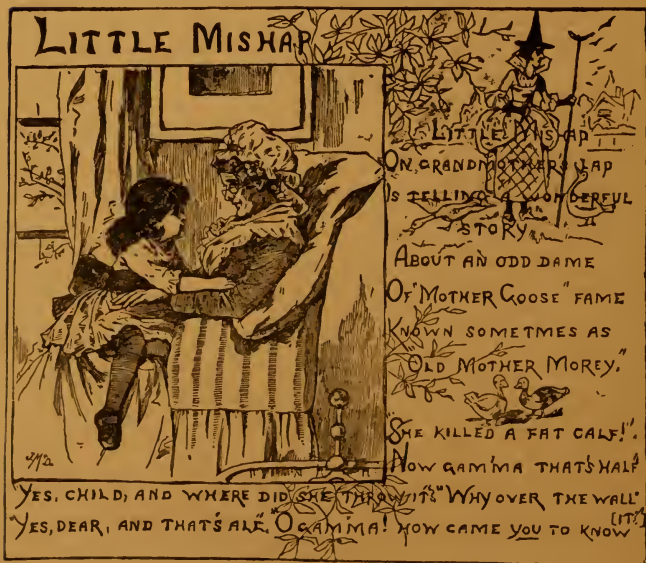 LITTLE MISHAP
LITTLE MISHAP
ON GRANDMOTHER'S LAP
IS TELLING A WONDERFUL
STORY
ABOUT AN ODD DAME
OF "MOTHER GOOSE" FAME
KNOWN SOMETMES AS
"OLD MOTHER MOREY."
"SHE KILLED A FAT CALF!".
NOW GAM'MA THAT'S HALF"
"YES, CHILD, AND WHERE DID SHE THROW IT?" "WHY OVER THE WALL"
"YES, DEAR, AND THAT'S ALL". "O GAM'MA! HOW CAME YOU TO KNOW
[IT?"]